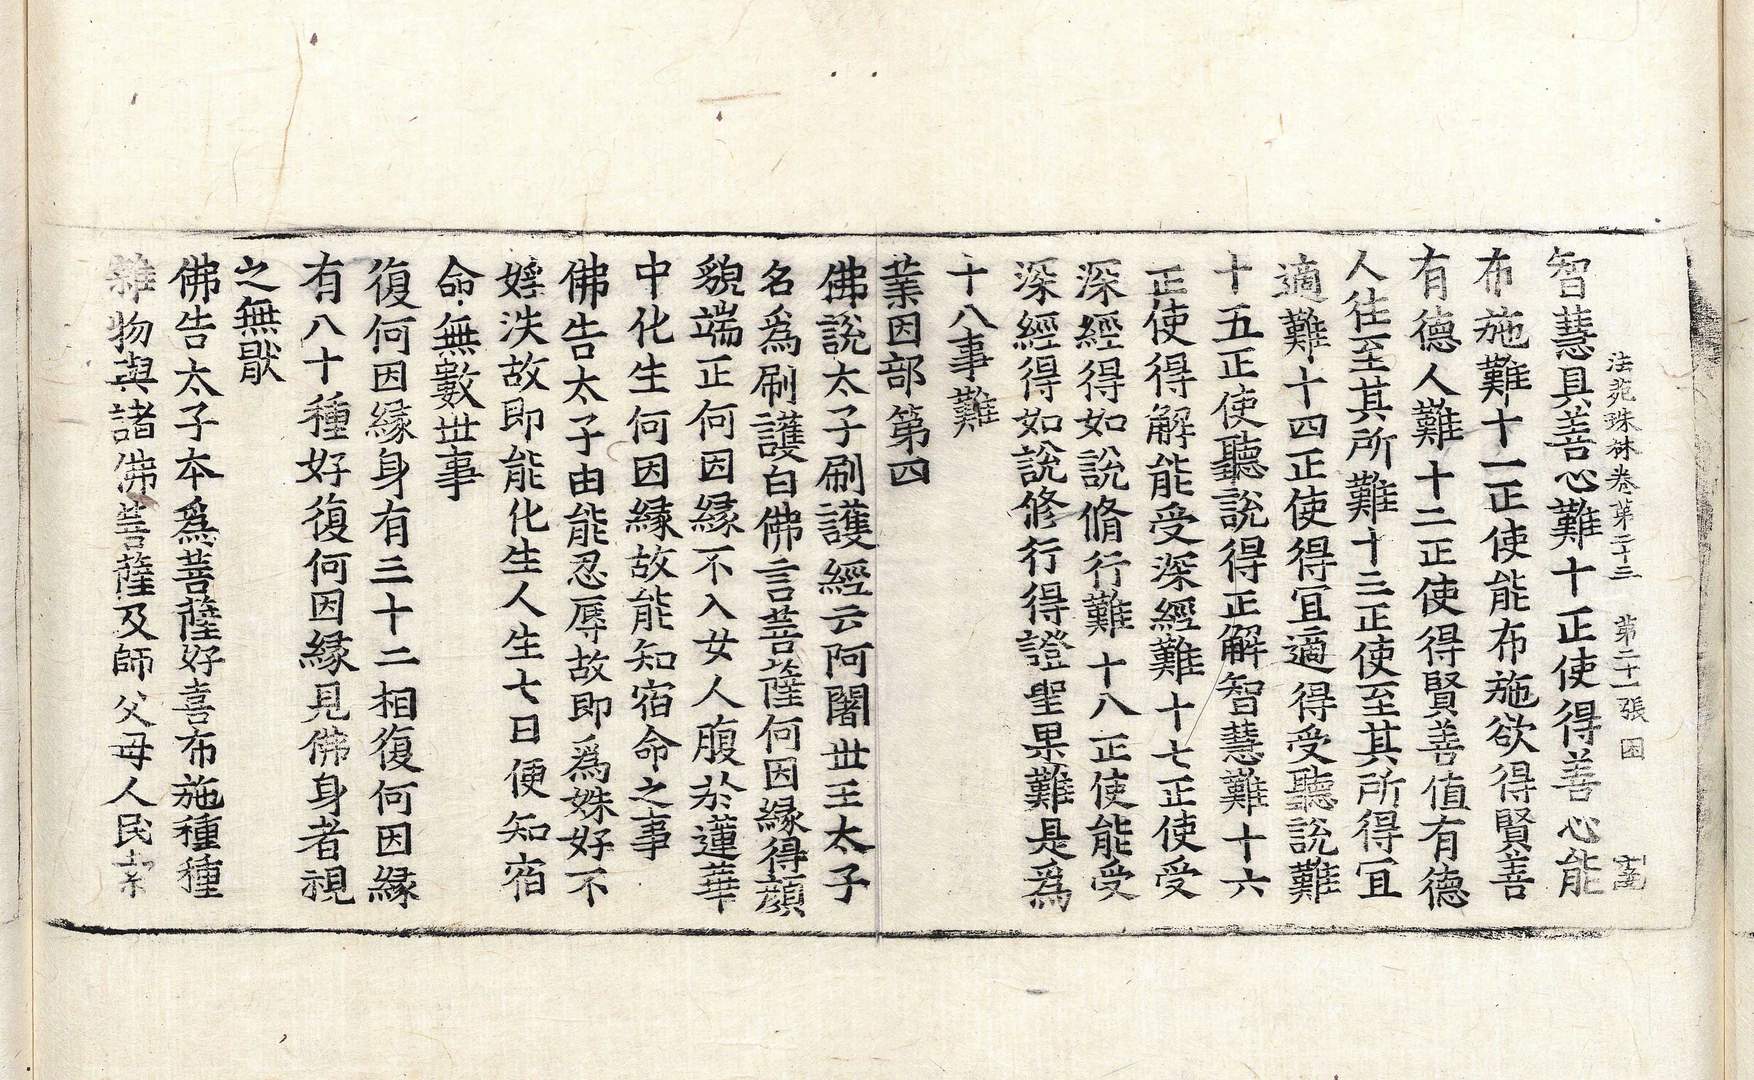 法苑珠林卷第二十三 第二十一張 困
智慧具善心難十正使得善心能
布施難十一正使能布施欲得賢善
有德人難十二正使得賢善值有德
人往至其所難十三正使至其所得冝
適難十四正使得冝適得受聽說難
十五正使聽說得正解智慧難十六
正使得解能受深經難十七正使受
深經得如說脩行難十八正使能受
深經得如說修行得證聖果難是爲
十八事難
業因部第四
佛說太子刷護經云阿闍世王太子
名爲刷護白佛言菩薩何因緣得顏
貌端正何因緣不入女人腹於蓮華
中化生何因緣故能知宿命之事
佛告太子由能忍辱故即爲姝好不
婬泆故即能化生人生七日便知宿
命無數世事
復何因緣身有三十二相復何因緣
有八十種好復何因緣見佛身者視
之無猒
佛告太子本爲菩薩好喜布施種種
雜物與諸佛菩薩及師父母人民索